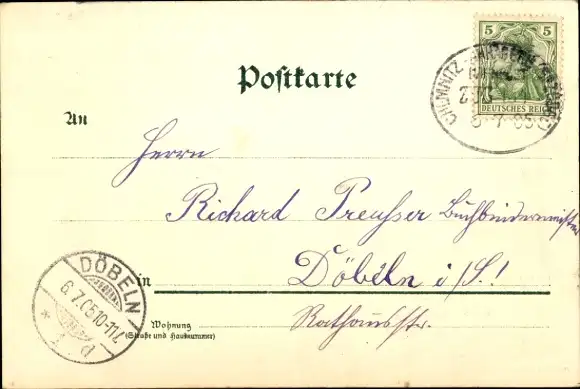 5 5
DEUTSCHES REICH
CHEMNITZ
6 7 05
Postkarte
An
Herrn
Richard Preusser Buchbindermeister
in Döbeln i/S.!
Rathausstr.
Wohnung
(Straße und Hausnummer)
DÖBELN
6.7.05 10-11V